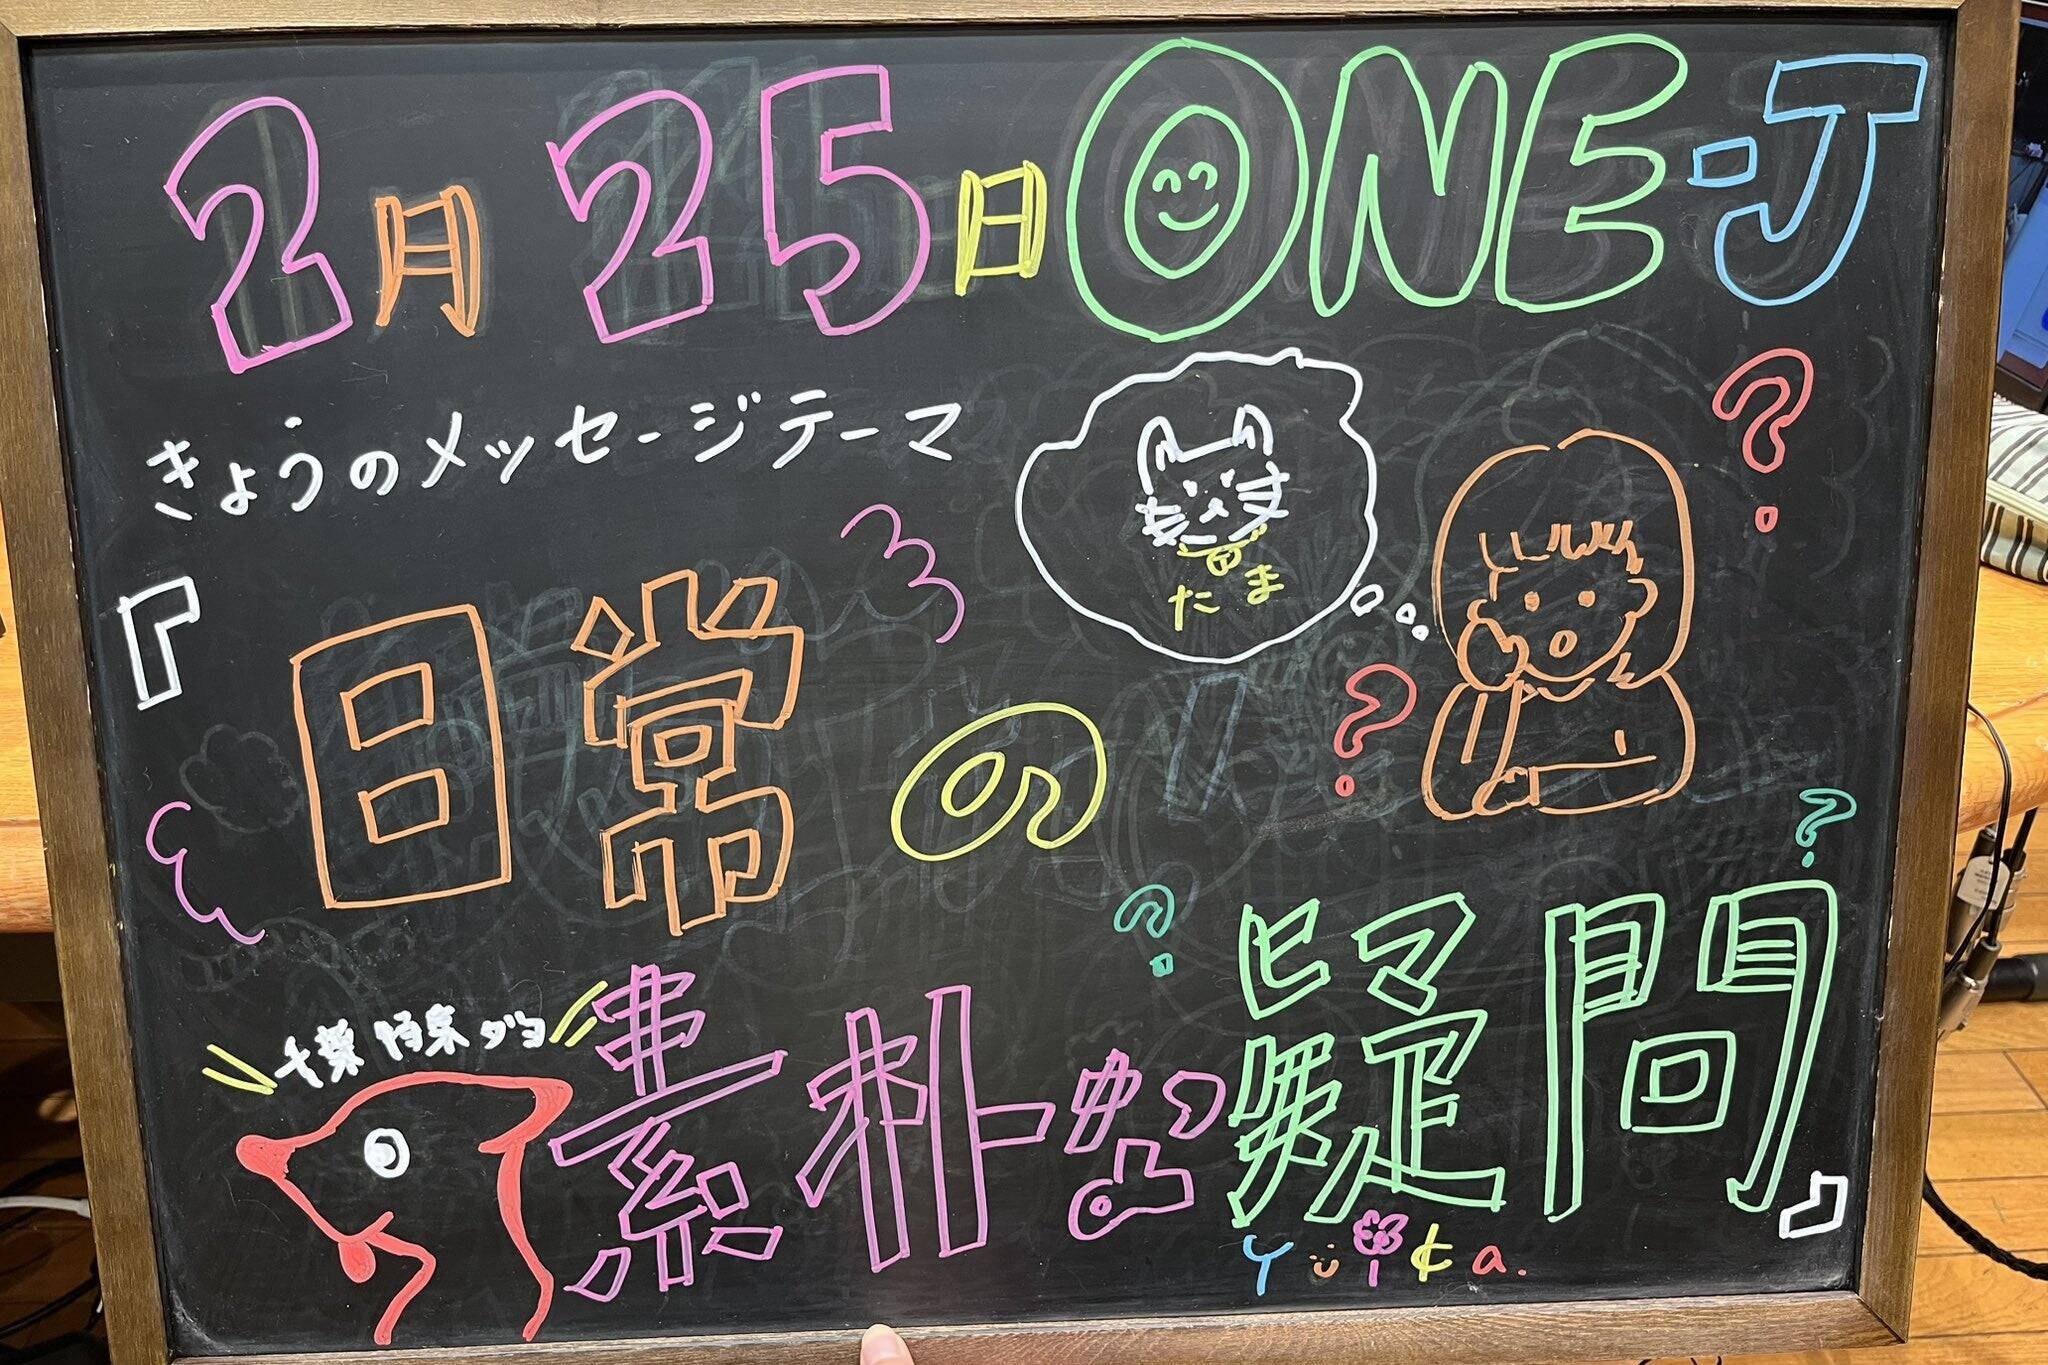 2月25日ONE-J
きょうのメッセージテーマ
たま
『日常の
素朴な疑問』
千葉 特派ダヨ
Yuika.